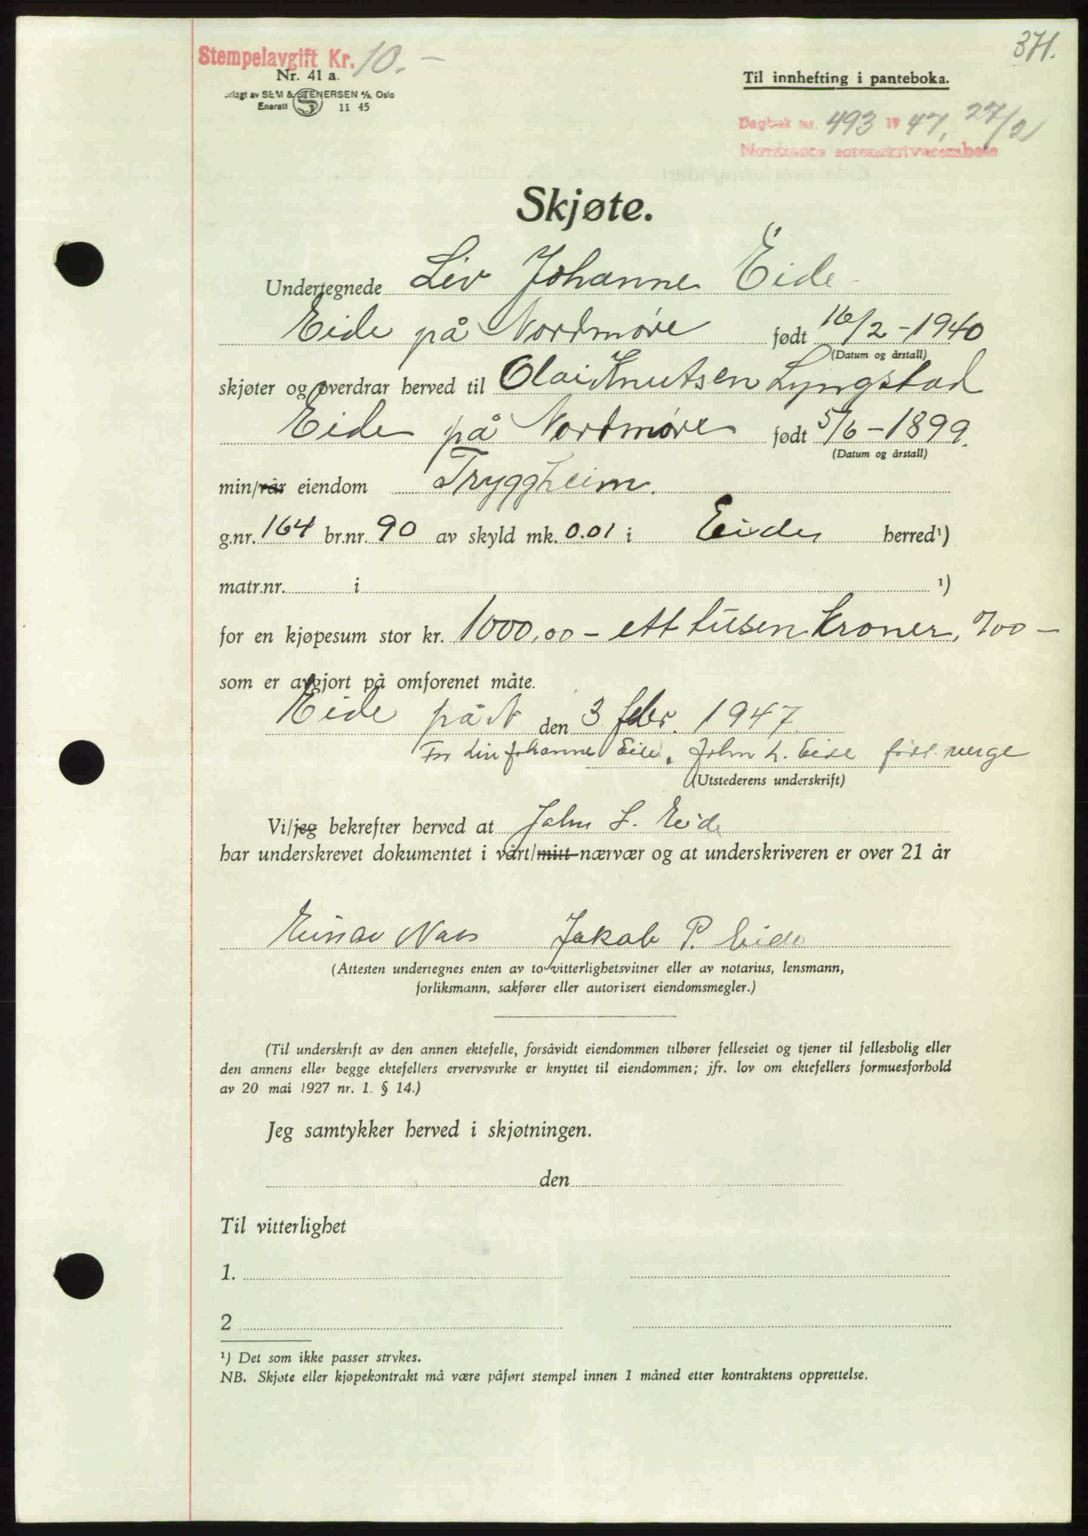 371.
Stempelavgift Kr. 10.-
Nr. 41 a.
Til innhefting i panteboka.
orlagt av SEM & STENERSEN A/S, Oslo
Enerett S 11 45
Dagbok nr. 493 1947, 27/2
Nordmøre sorenskriverembete
Skjøte.
Undertegnede Liv Johanne Eide
Eide på Nordmøre født 16/2-1940
(Datum og årstall)
skjøter og overdrar herved til Olai Knutsen Lyngstad
Eide på Nordmøre født 5/6-1899.
(Datum og årstall)
min/vår eiendom Tryggheim.
g.nr. 164 br.nr. 90 av skyld mk. 0.01 i Eide herred¹)
matr.nr. i ¹)
for en kjøpesum stor kr. 1000,00 - ett tusen kroner, °/00 -
som er avgjort på omforenet måte.
Eide på N den 3 febr. 1947.
For Liv Johanne Eide. John L. Eide verge
(Utstederens underskrift)
Vi/jeg bekrefter herved at John L. Eide
har underskrevet dokumentet i vårt/mitt nærvær og at underskriveren er over 21 år
Einar Naas Jakob P. Eide
(Attesten undertegnes enten av to vitterlighetsvitner eller av notarius, lensmann,
forliksmann, sakfører eller autorisert eiendomsmegler.)
(Til underskrift av den annen ektefelle, forsåvidt eiendommen tilhører felleseiet og tjener til fellesbolig eller
den annens eller begge ektefellers ervervsvirke er knyttet til eiendommen; jfr. lov om ektefellers formuesforhold
av 20 mai 1927 nr. 1. § 14.)
Jeg samtykker herved i skjøtningen.
den
Til vitterlighet
1.
2
¹) Det som ikke passer strykes.
NB. Skjøte eller kjøpekontrakt må være påført stempel innen 1 måned etter kontraktens opprettelse.